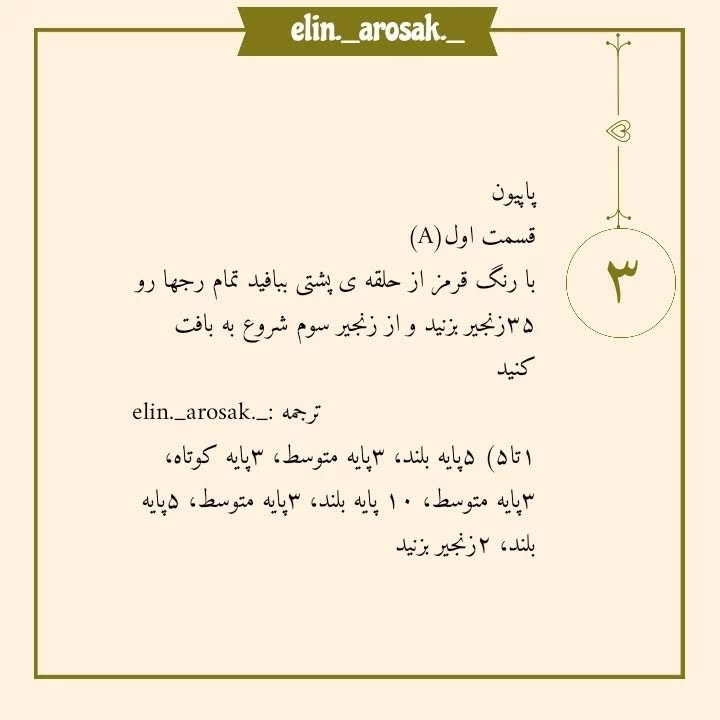 elin._arosak._
۳
پاپیون
قسمت اول(A)
با رنگ قرمز از حلقه ی پشتی ببافید تمام رجها رو
۳۵زنجیر بزنید و از زنجیر سوم شروع به بافت
کنید
ترجمه :_.elin._arosak
۱تا۵) ۵پایه بلند، ۳پایه متوسط، ۳پایه کوتاه،
۳پایه متوسط، ۱۰ پایه بلند، ۳پایه متوسط، ۵پایه
بلند، ۲زنجیر بزنید